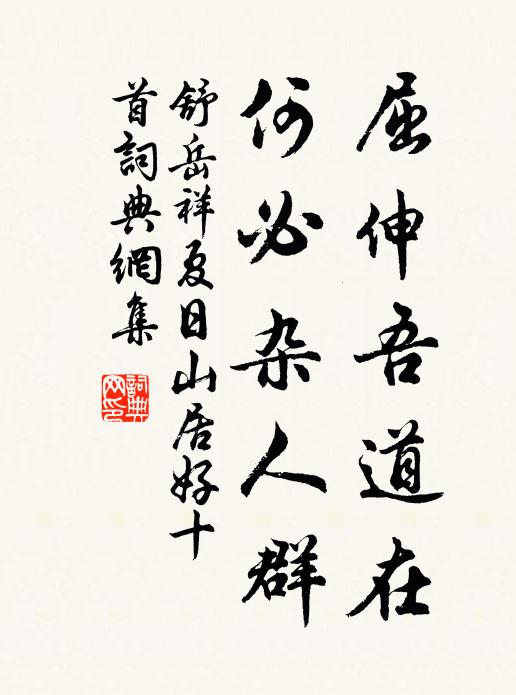 屈伸吾道在
何必杂人群
舒岳祥夏日山居好十
首詞典網集
詞典
网印